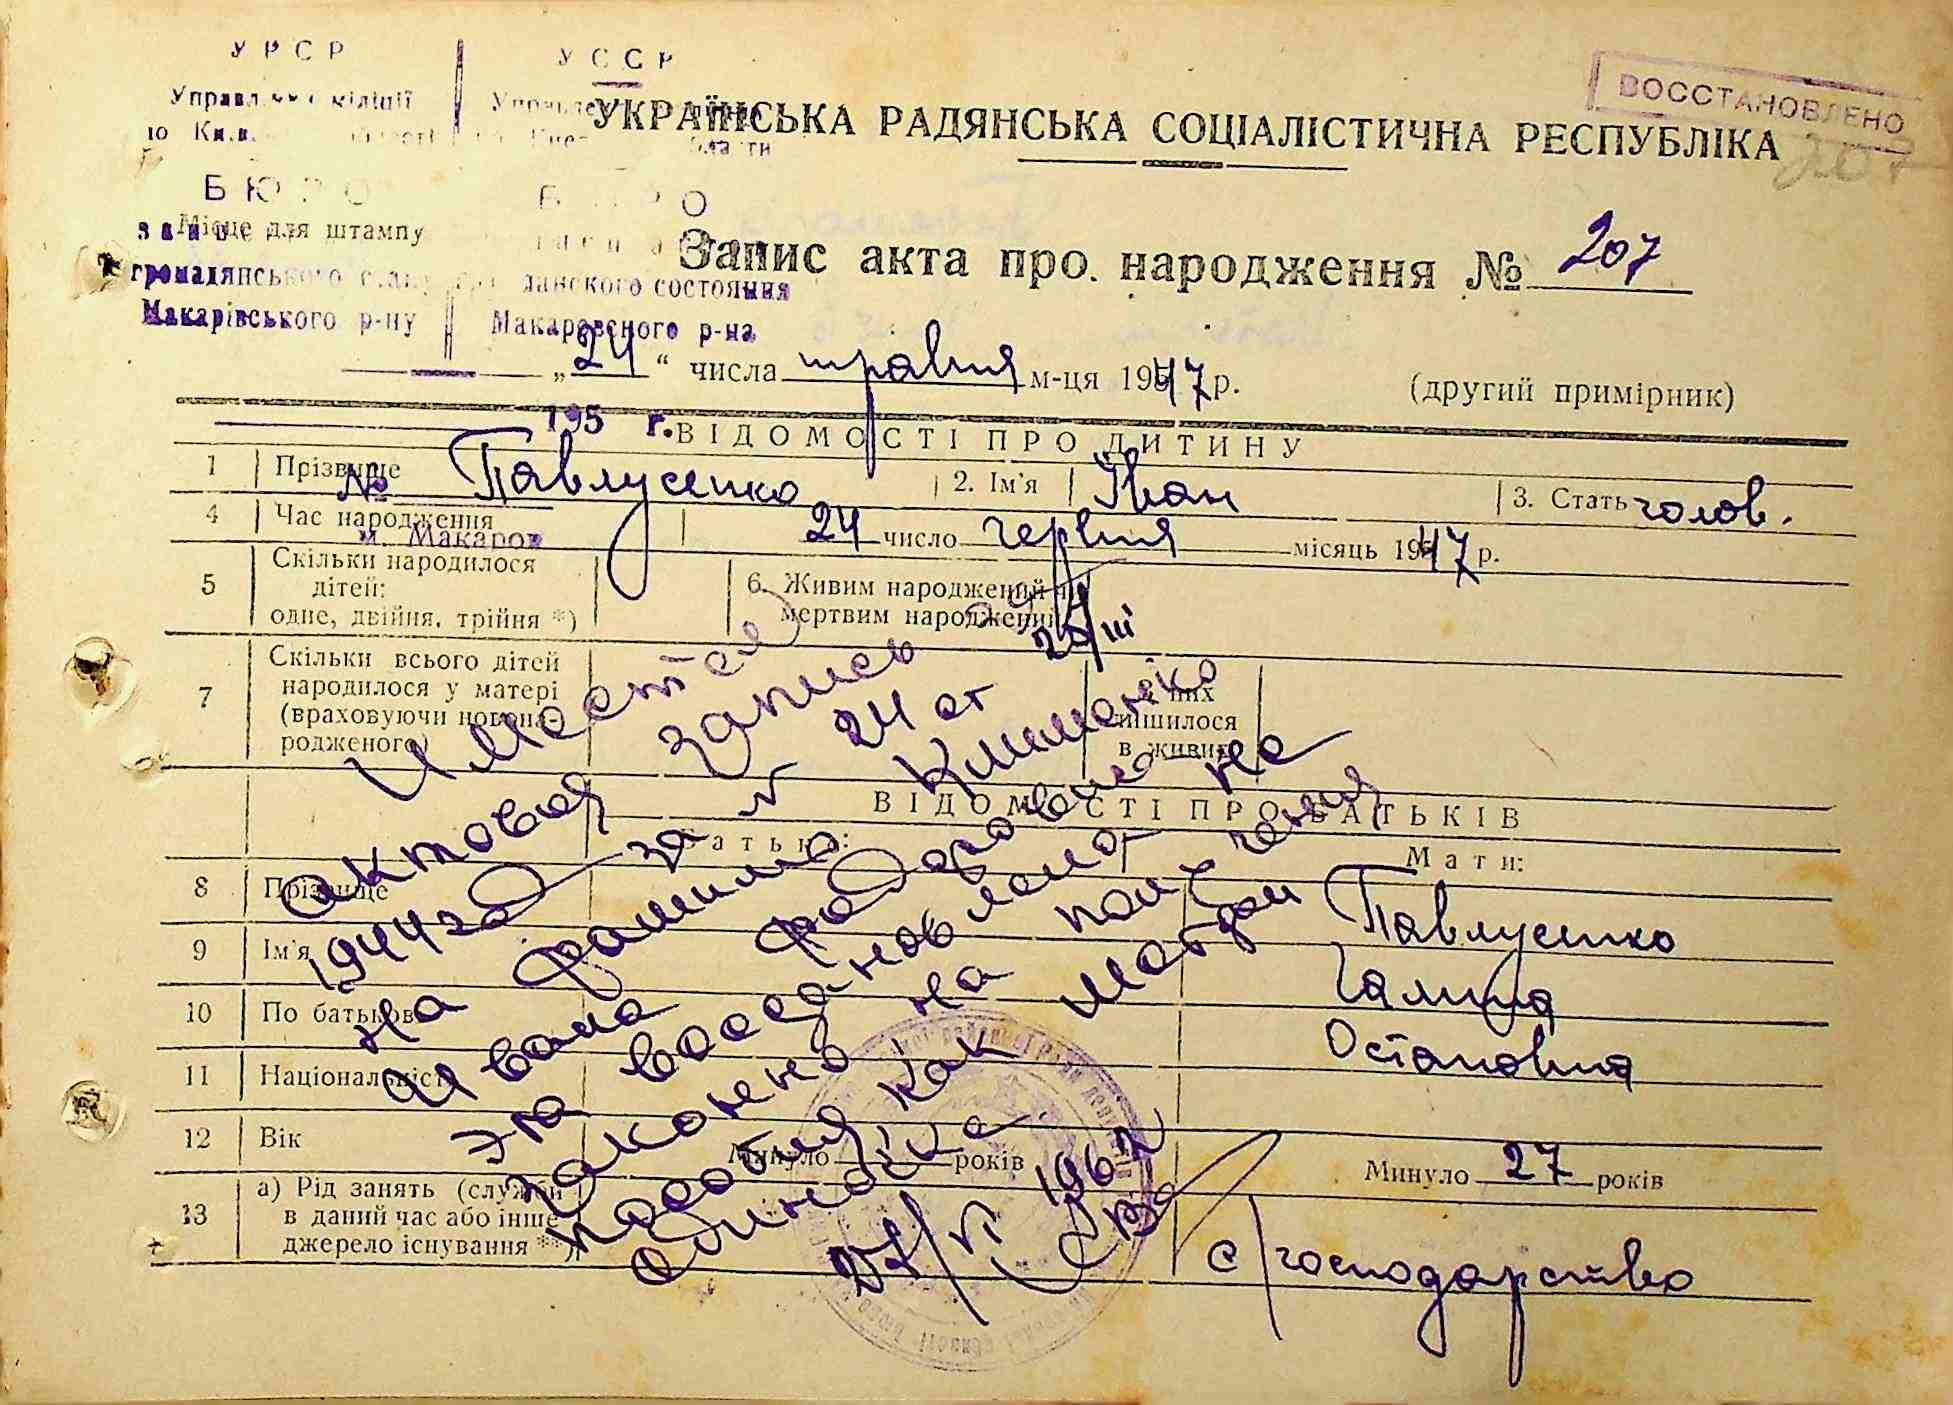 УРСР УССР
Управління міліції
по
БЮРО БЮРО
Місце для штампу
громадянського стану гражданского состояния
Макарівського р-ну Макаровского р-на
195 г.
№
м. Макаров
ВОССТАНОВЛЕНО
207
УКРАЇНСЬКА РАДЯНСЬКА СОЦІАЛІСТИЧНА РЕСПУБЛІКА
Запис акта про народження № 207
„24“ числа травня м-ця 1947 р. (другий примірник)
ВІДОМОСТІ ПРО ДИТИНУ
1 Прізвище Павлусенко 2. Ім'я Іван 3. Стать голов.
4 Час народження 24 число червня місяць 1947 р.
5 Скільки народилося дітей: одне, двійня, трійня *) 6. Живим народжений чи мертвим народжений
7 Скільки всього дітей народилося у матері (враховуючи новонародженого) з них лишилося в живих
ВІДОМОСТІ ПРО БАТЬКІВ
Батько: Мати:
8 Прізвище Павлусенко
9 Ім'я Галина
10 По батькові Остаповна
11 Національність
12 Вік Минуло років Минуло 27 років
13 а) Рід занять (служби в даний час або інше джерело існування **) с/господарство
Имеется
актовая запись
1944 год за № 24 от 24/III
на фамилию Клименко
Ивана Федоровича
на
на получения
пособия как матери
одиночка
1962